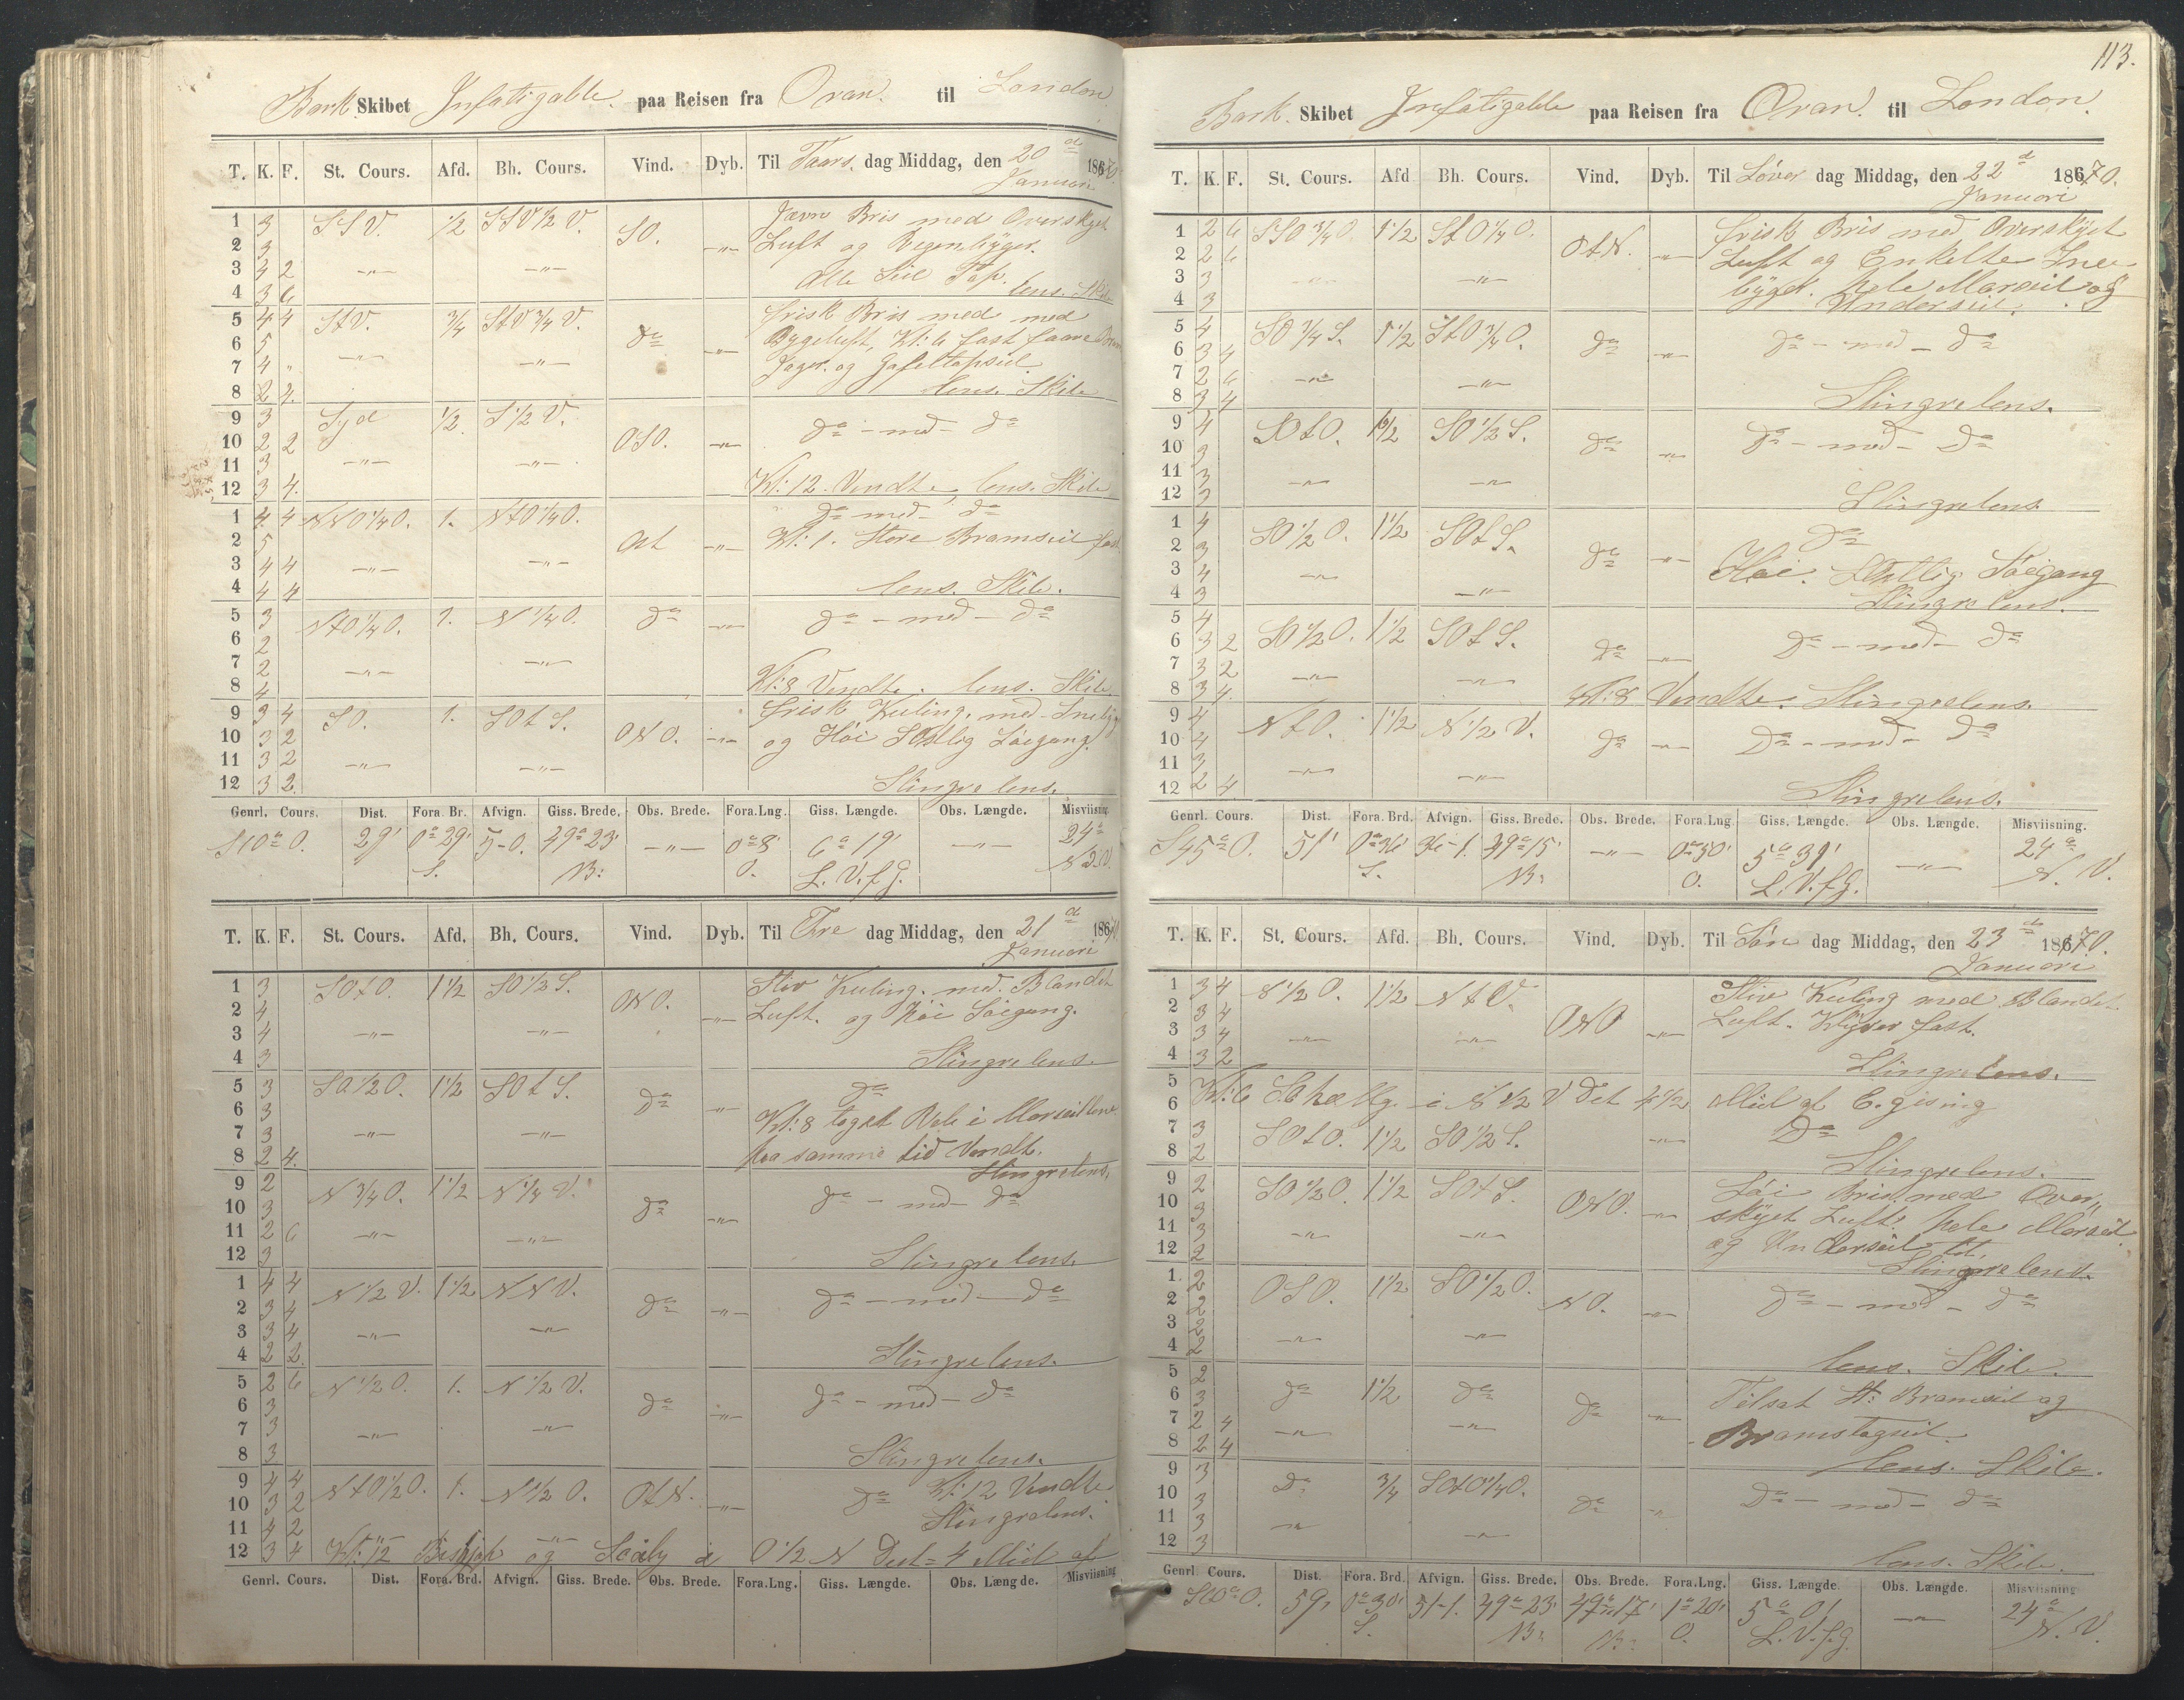 Bark Skibet Infatigable. paa Reisen fra Oran. til London
T. K. F. St. Cours. Afd. Bh. Cours. Vind. Dyb. Til Thors dag Middag, den 20de Januari 1870.
1 3 SSV. 1/2 SSV1/2V. SO. -"- Jævn Bris med Overskyet
2 3 Luft og Regenbyger.
3 4 2 -"- -"- Alle Seil Top.
4 3 6 lens. Skib
5 4 4 StV. 3/4 StV3/4V. Do -"- frisk Bris med med
6 5 Bygeluft, Kl: 6 fast faare Bram
7 4 " -"- -"- Jager. og Gafeltopseil
8 2 4. lens. Skib
9 3 Syd 1/2 S1/2V. OSO. -"- Do - med - Do
10 2 2
11 3 -"- -"-
12 3 4. Kl: 12 Vendte, lens. Skib
1 4 4 NNO1/4O. 1. NtO1/4O. Ost -"- Do med Do
2 5 Kl: 1. Store Bramseil fast
3 4 4 -"- -"-
4 4 4 lens. Skib.
5 3 NtO1/4O. 1. N1/4O. Do -"- Do - med - Do
6 2
7 2 -"- -"-
8 4 Kl: 8 Vendte. lens. Skib
9 3 4 SO. 1. SOtS. ONO. -"- frisk Kuling. med Snebyger
10 3 2 og Höi SOstlig Söegang.
11 3 2 -"- -"-
12 3 2. Slingrelens.
Genrl. Cours. Dist. Fora. Br. Afvign. Giss. Brede. Obs. Brede. Fora.Lng. Giss. Længde. Obs. Længde. Misviisning
S10°O. 29' 0°29' 5-0. 49°23' -"- 0°8' 6°19' -"- 24°
S. B: O. L.V.f.G. N V.
T. K. F. St. Cours. Afd. Bh. Cours. Vind. Dyb. Til Fre dag Middag, den 21de Januari 1870.
1 3 SOtO. 1 1/2 SO1/2S. ONO. -"- Stiv Kuling. med Blandet
2 4 Luft. og Höi Söegang.
3 4 -"- -"-
4 3 Slingrelens
5 3 SO1/2O. 1 1/2 SOtS. Do -"- Do
6 3 Kl: 8 toget Reb i Merseillene
7 3 -"- -"- paa samme tid Vendt.
8 2 4. Slingrelens.
9 2 N3/4O. 1 1/2 N1/4V. Do -"- Do - med - Do
10 3
11 2 6 -"- -"-
12 3 Slingrelens.
1 4 4 N1/2V. 1 1/2 NNV. Do -"- Do - med - Do
2 3 4
3 3 4 -"- -"-
4 2 2. Slingrelens.
5 2 6 N1/2O. 1. N1/2V. Do -"- Do - med - Do
6 3
7 3 -"- -"-
8 3 Slingrelens.
9 4 4 NtO1/2O. 1. N1/2O. OtN. -"- Do Kl: 12 Vendte
10 3 2 Slingrelens.
11 4 2 -"- -"-
12 3 4 Kl: 12 og i O1/2N Dist= 4 Miil af
Genrl. Cours. Dist. Fora. Brd. Afvign. Giss. Brede. Obs. Brede. Fora.Lng. Giss. Længde. Obs. Længde. Misviisning
113.
Bark. Skibet Infatigable paa Reisen fra Oran. til London.
T. K. F. St. Cours. Afd Bh. Cours. Vind. Dyb. Til Löver dag Middag, den 22de Januari 1870.
1 2 6 SSO3/4O. 1 1/2 StO1/4O. OtN. -"- frisk Bris med Overskyet
2 2 6 Luft og Enkelte Snee
3 3 -"- -"- byger. hele Merseil og
4 3 Underseil.
5 4 SO3/4S. 1 1/2 StO3/4O. Do -"- Do - med - Do
6 3 4
7 2 6 -"- -"-
8 3 4 Slingrelens.
9 4 SOtO. 1 1/2 SO1/2S. Do -"- Do - med - Do
10 3
11 3 -"- -"-
12 3 Slingrelens
1 4 SO1/2O. 1 1/2 SOtS. Do -"- Do
2 3 Höi. Östlig Söegang
3 4 -"- -"-
4 3 Slingrelens.
5 4 SO1/2O. 1 1/2 SOtS. Do -"- Do - med - Do
6 3 2
7 3 2 -"- -"-
8 3 4. Kl: 8 Vendte. Slingrelens.
9 4 NtO. 1 1/2 N1/2V. Do -"- Do - med - Do
10 4
11 3 -"- -"-
12 2 4 Slingrelens.
Genrl. Cours. Dist. Fora. Brd. Afvign. Giss. Brede. Obs. Brede. Fora.Lng. Giss. Længde. Obs. Længde. Misviisning.
S45°O. 51' 0°36' 36-1. 49°15' -"- 0°50' 5°31' -"- 24°
S. B: O. L.V.f.G. N. V.
T. K. F. St. Cours. Afd. Bh. Cours. Vind. Dyb. Til Sön dag Middag, den 23de Januari 1870.
1 3 4 N1/2O. 1 1/2 NtV. ONO -"- Stiv Kuling med Blandet
2 3 4 Luft. Klyver fast.
3 3 4 -"- -"-
4 3 2 Slingrelens.
5
6 Kl: 6 i N1/2V Dist 4 1/2 Miil af gising
7 3 SOtO. 1 1/2 SO1/2S. -"- Do
8 2 Slingrelens.
9 2 SO1/2O. 1 1/2 SOtS. ONO. -"- Löi Bris med Over„
10 3 skyet Luft. hele Merseil
11 3 -"- -"- og Underseil til.
12 2 Slingrelens.
1. 2 OSO. 1 1/2 SO1/2O. NO. -"- Do - med - Do
2 2
3 2 -"- -"-
4 2 lens. Skib.
5 2 Do 1 1/2 Do Do -"- Tilsat St: Bramseil og
6 3 Bramstagseil.
7 2 4 -"- -"-
8 2 4 lens. Skib.
9 3 Do 3/4 SOtO1/4O. Do -"- Do - med - Do
10 3
11 3 -"- -"-
12 3 lens. Skib.
Genrl. Cours. Dist. Fora. Brd. Afvign. Giss. Brede. Obs. Brede. Fora.Lng. Giss. Længde. Obs. Længde. Misviisning
S60°O. 59' 0°30' 51-1. 49°23' 49°17' 1°20' 5°01' -"- 24°
S. B: B: O. L.V.f.G. N. V.